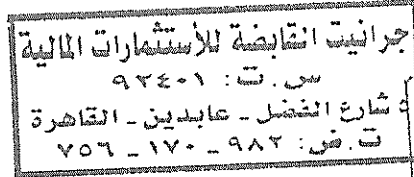 جرانيت القابضة للأستثمارات المالية
س . ت : ٩٢٤٠١
شارع الفضل - عابدين - القاهرة
ت . ض : ٩٨٢ - ١٧٠ - ٧٥٦